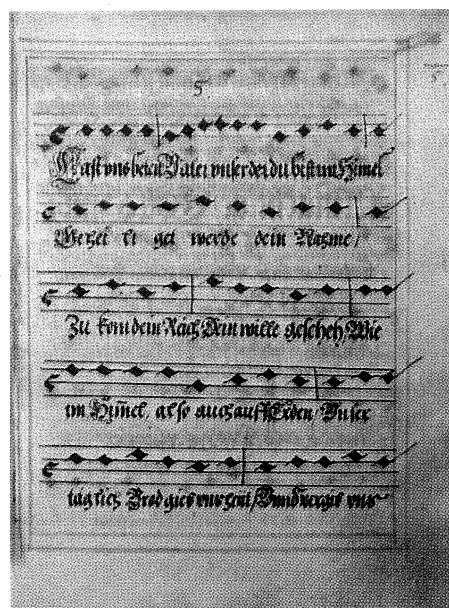 5
Last uns beten Vater unser der du bist im Himel
Gehei li get werde dein Nahme/
Zu kom dein Reich/ Dein wille gescheh/ Wie
im Him̃el/ also auch auff Erden/ Unser
täglich Brod gieb uns heut/ Vnnd vergib uns